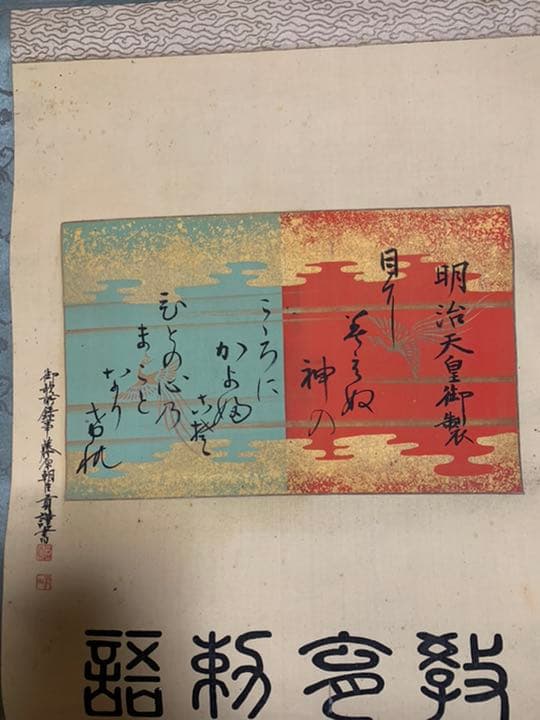 明治天皇御製
目に
見えぬ
神の
こゝろに
かよふ
こそ
ひとの心の
まこと
なり
けれ
御歌所録事 藤原朝臣 謹書
教育勅語